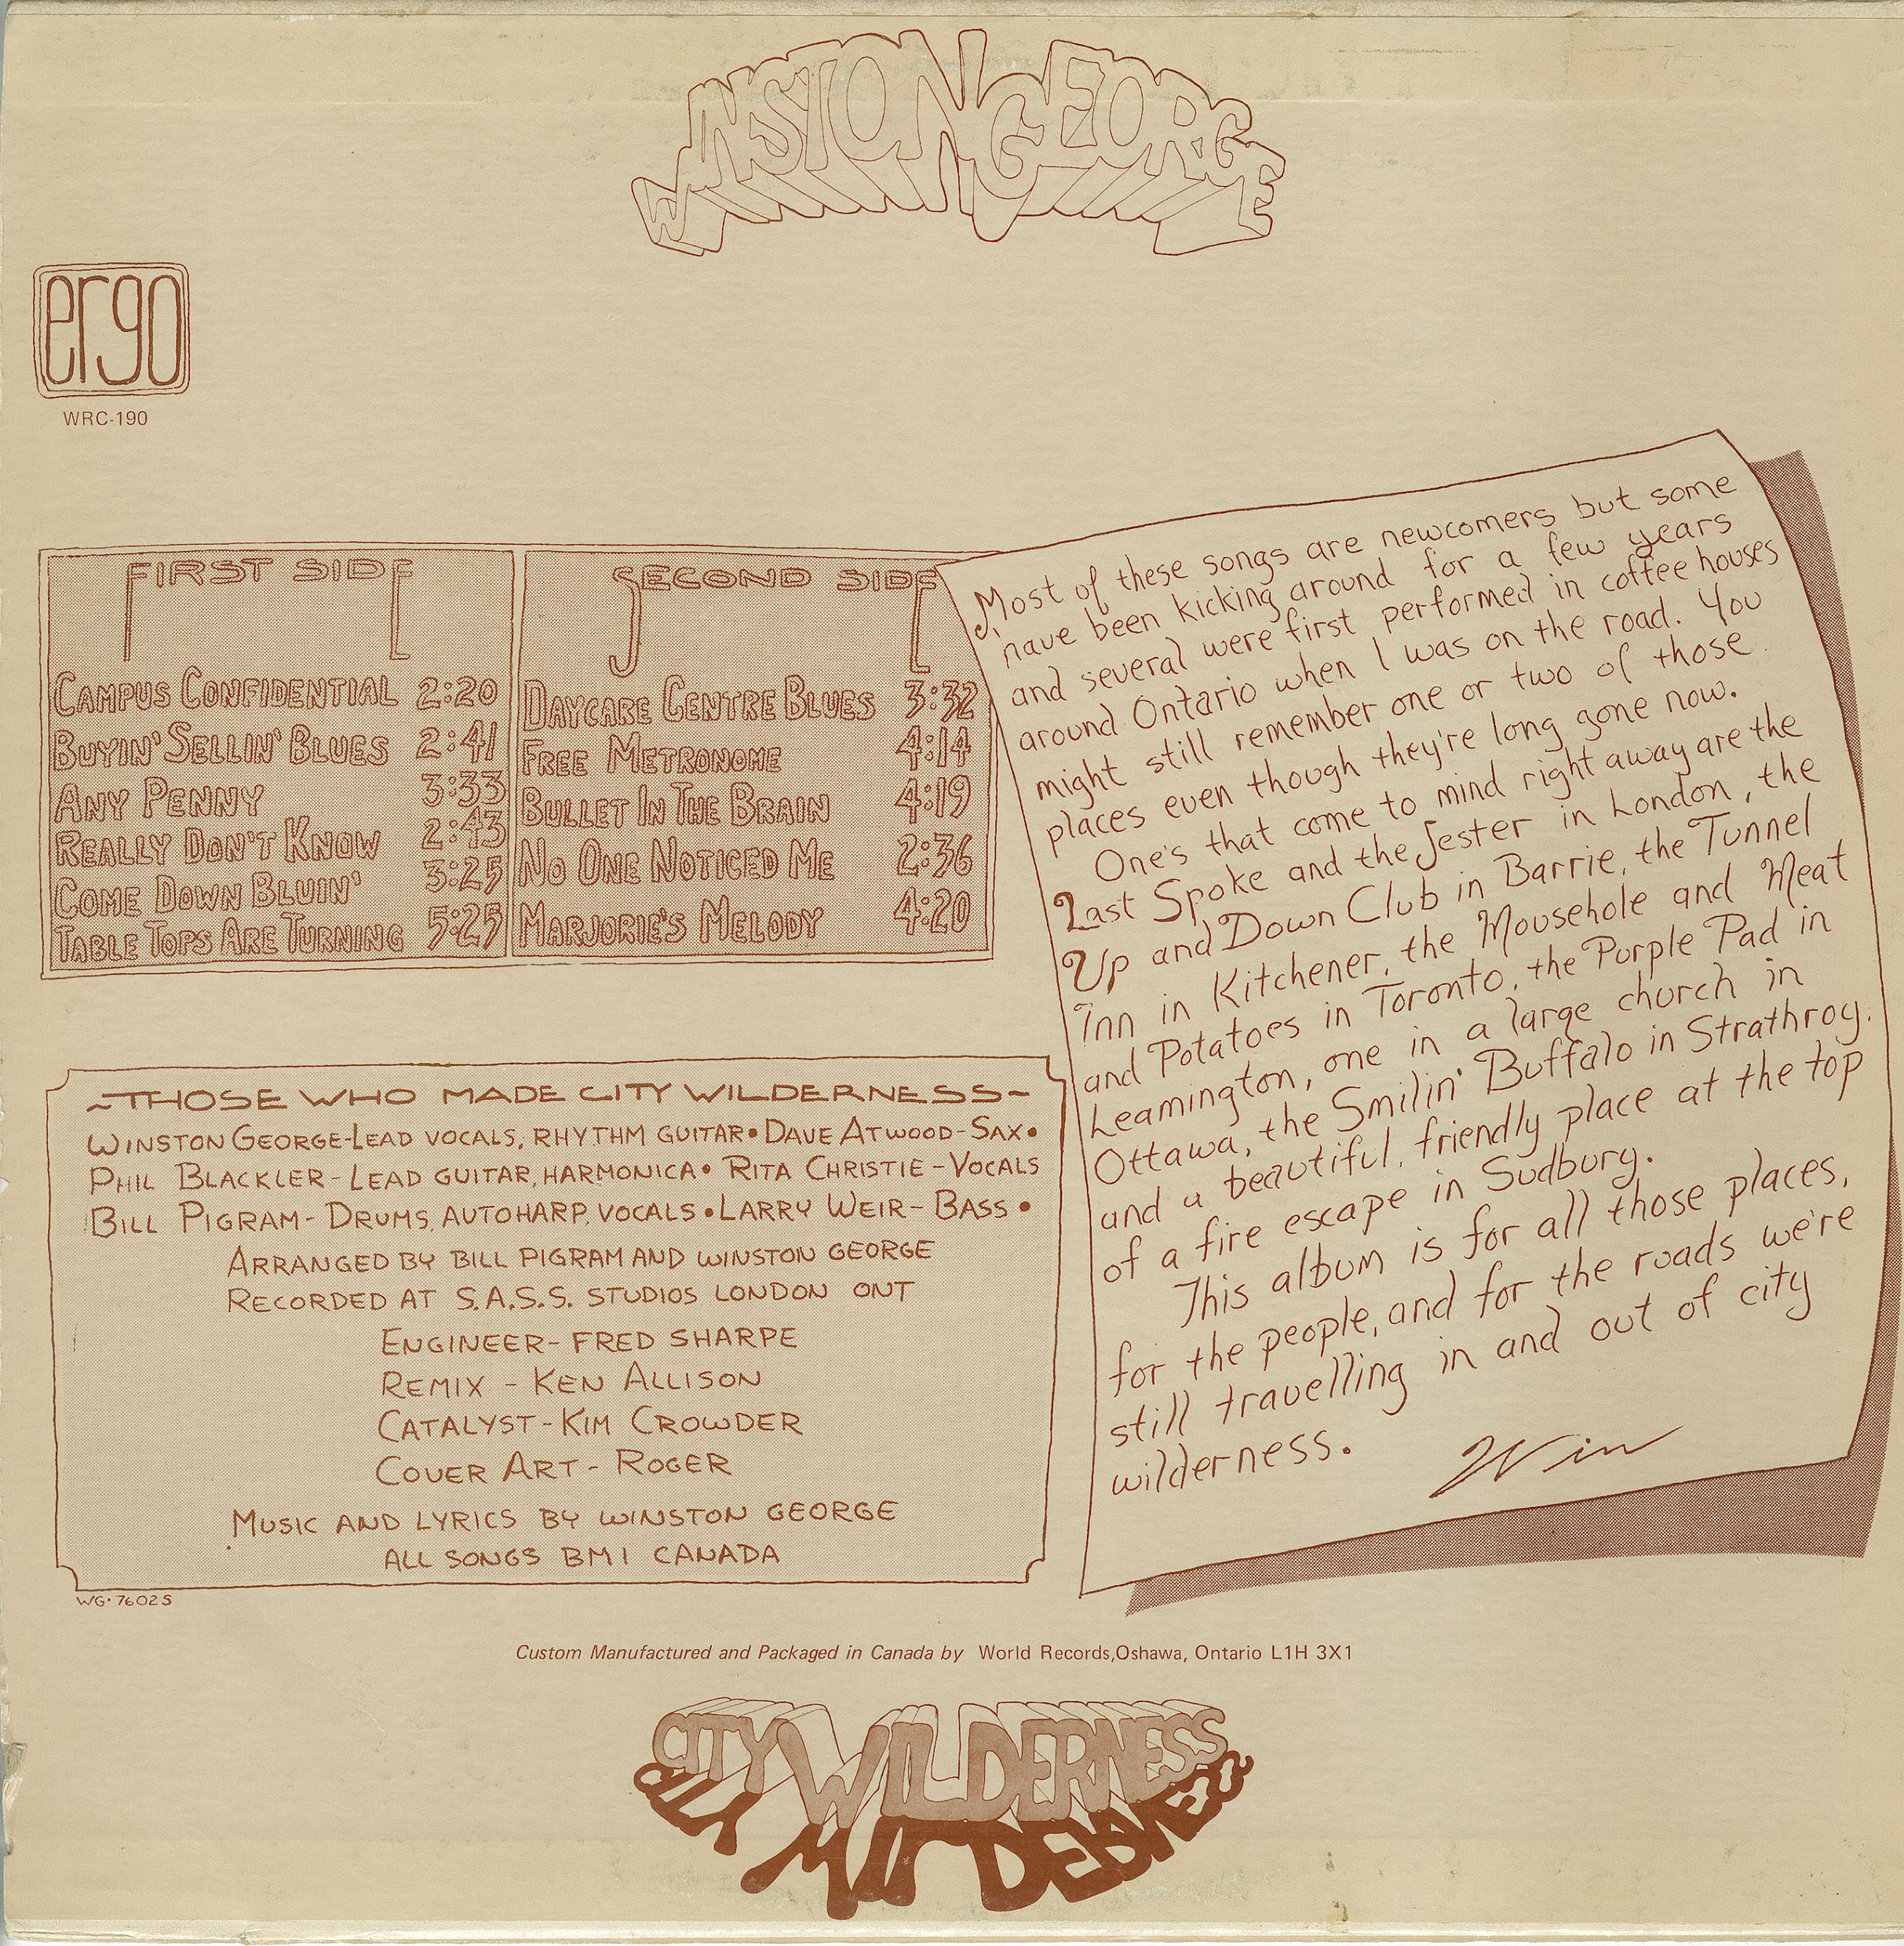 WINSTON GEORGE
ergo
WRC-190
FIRST SIDE
CAMPUS CONFIDENTIAL 2:20
BUYIN' SELLIN' BLUES 2:41
ANY PENNY 3:33
REALLY DON'T KNOW 2:43
COME DOWN BLUIN' 3:25
TABLE TOPS ARE TURNING 5:25
SECOND SIDE
DAYCARE CENTRE BLUES 3:32
FREE METRONOME 4:14
BULLET IN THE BRAIN 4:19
NO ONE NOTICED ME 2:36
MARJORIE'S MELODY 4:20
Most of these songs are newcomers but some
have been kicking around for a few years
and several were first performed in coffee houses
around Ontario when I was on the road. You
might still remember one or two of those
places even though they're long gone now.
One's that come to mind right away are the
Last Spoke and the Jester in London, the
Up and Down Club in Barrie, the Tunnel
Inn in Kitchener, the Mousehole and Meat
and Potatoes in Toronto, the Purple Pad in
Leamington, one in a large church in
Ottawa, the Smilin' Buffalo in Strathroy.
and a beautiful, friendly place at the top
of a fire escape in Sudbury.
This album is for all those places,
for the people, and for the roads we're
still travelling in and out of city
wilderness.
Win
~THOSE WHO MADE CITY WILDERNESS~
WINSTON GEORGE-LEAD VOCALS, RHYTHM GUITAR • DAVE ATWOOD-SAX •
PHIL BLACKLER-LEAD GUITAR, HARMONICA • RITA CHRISTIE-VOCALS
BILL PIGRAM-DRUMS, AUTOHARP, VOCALS • LARRY WEIR-BASS •
ARRANGED BY BILL PIGRAM AND WINSTON GEORGE
RECORDED AT S.A.S.S. STUDIOS LONDON ONT
ENGINEER-FRED SHARPE
REMIX - KEN ALLISON
CATALYST-KIM CROWDER
COVER ART - ROGER
MUSIC AND LYRICS BY WINSTON GEORGE
ALL SONGS BMI CANADA
WG•7602S
Custom Manufactured and Packaged in Canada by World Records,Oshawa, Ontario L1H 3X1
CITY WILDERNESS